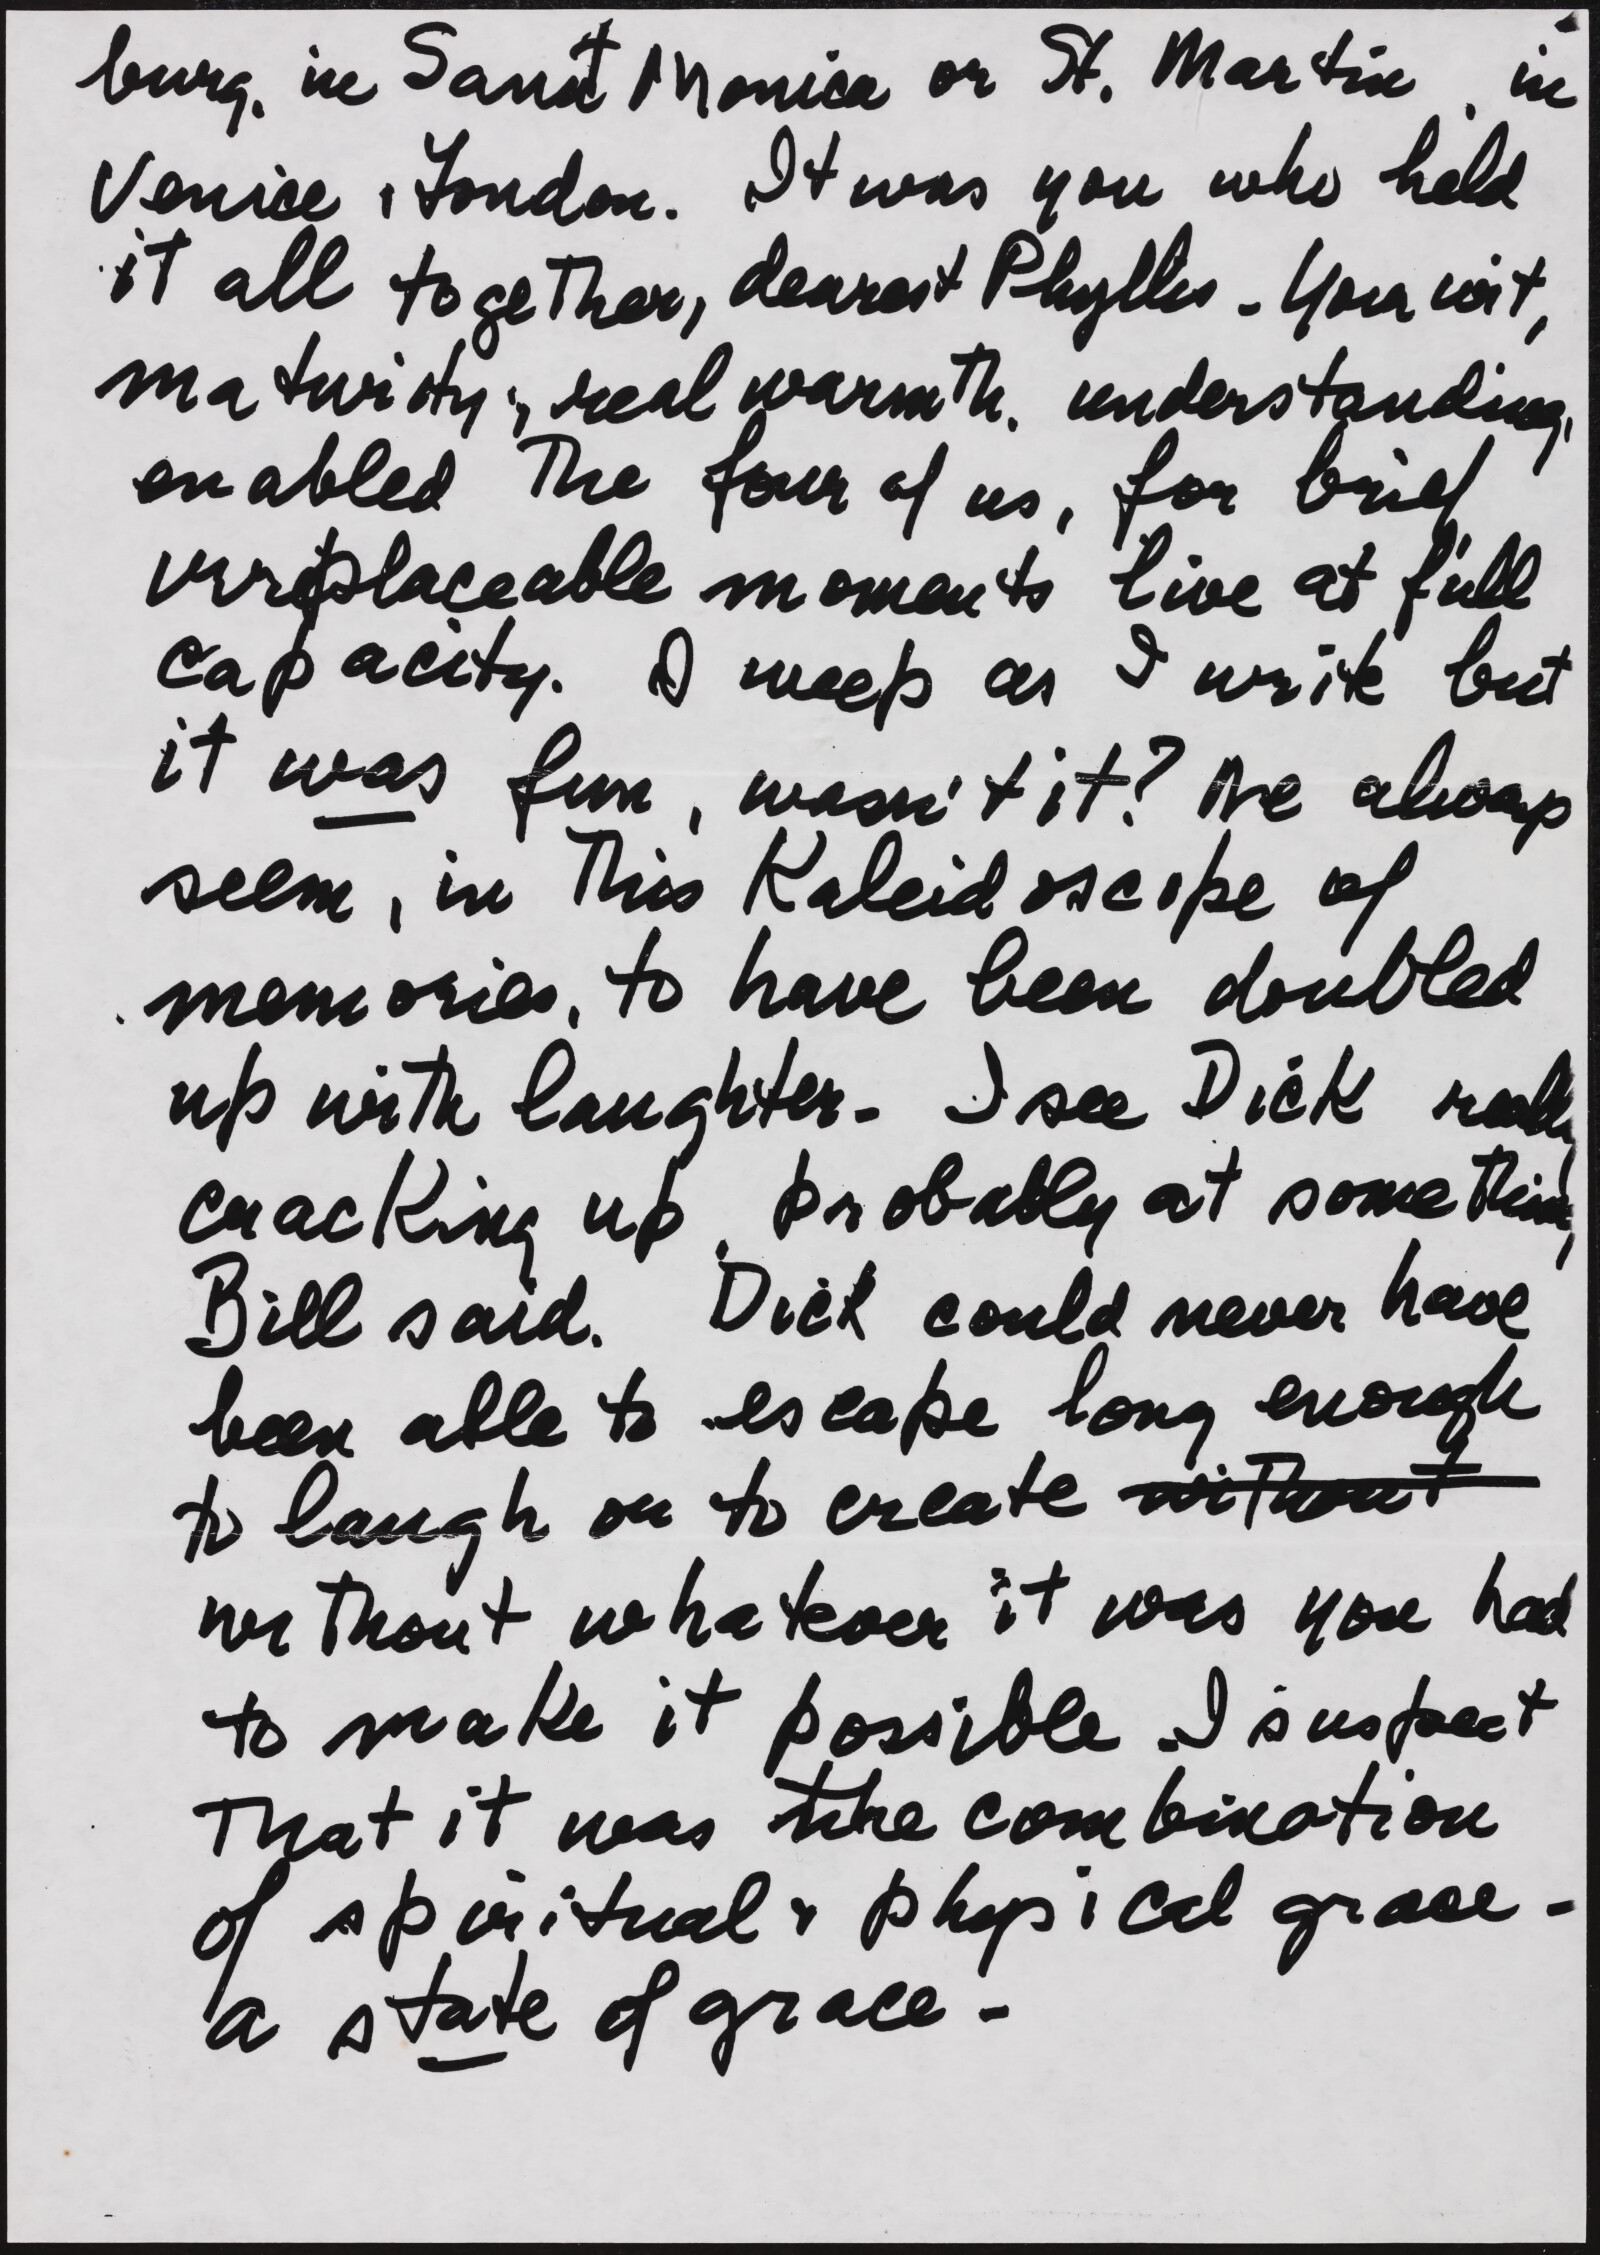 burg, in Sant Monica or St. Martin, in
Venice, London. It was you who held
it all together, dearest Phyllis - Your wit,
maturity, real warmth, understanding,
enabled the four of us, for brief
irreplaceable moments live at full
capacity. I weep as I write but
it was fun, wasn't it? We always
seem, in this Kaleidoscope of
memories, to have been doubled
up with laughter - I see Dick really
cracking up, probably at something
Bill said. Dick could never have
been able to escape long enough
to laugh or to create without
without whatever it was you had
to make it possible. I suspect
that it was the combination
of spiritual & physical grace -
a state of grace -